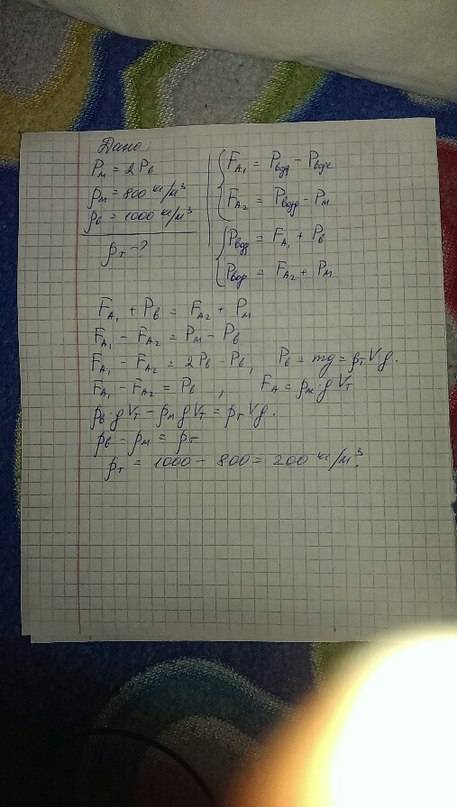 Дано
P_м = 2P_в
ρ_м = 800 кг/м³
ρ_в = 1000 кг/м³
ρ_т - ?
F_A₁ = P_возд - P_воде
F_A₂ = P_возд - P_м
P_возд = F_A₁ + P_в
P_возд = F_A₂ + P_м
F_A₁ + P_в = F_A₂ + P_м
F_A₁ - F_A₂ = P_м - P_в
F_A₁ - F_A₂ = 2P_в - P_в, P_в = mg = ρ_т V g.
F_A₁ - F_A₂ = P_в , F_A = ρ_ж · g V_т
ρ_в · g V_т - ρ_м g V_т = ρ_т V g.
ρ_в - ρ_м = ρ_т
ρ_т = 1000 - 800 = 200 кг/м³.